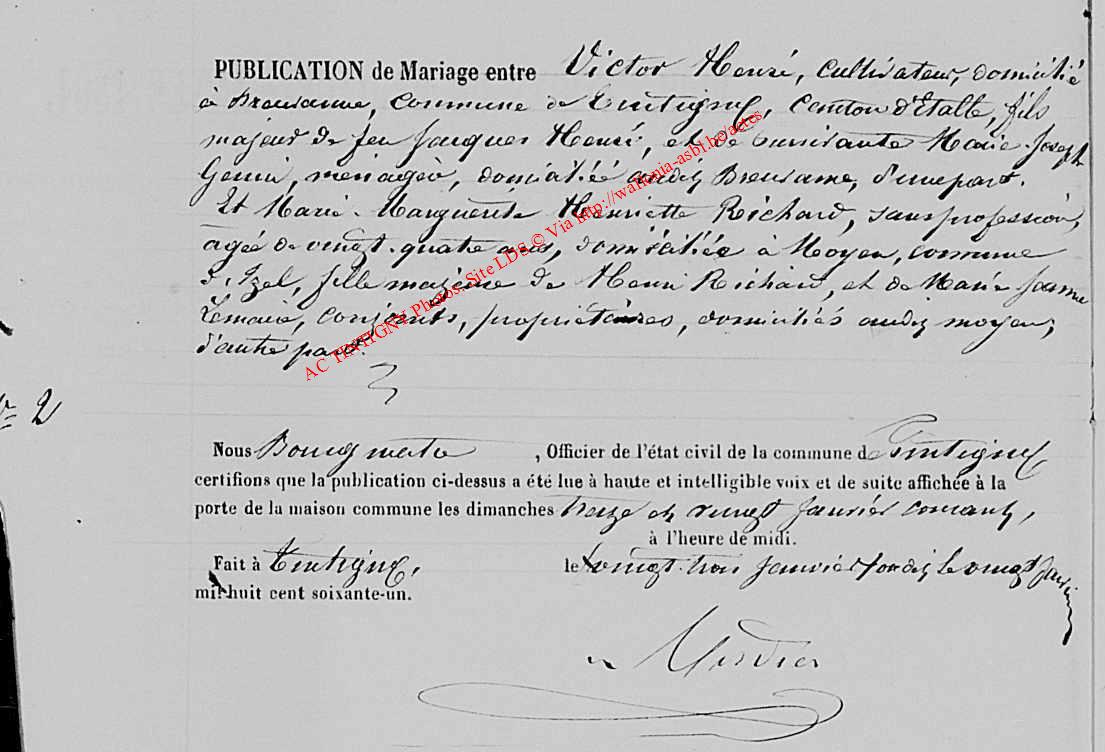 PUBLICATION de Mariage entre Victor Henré, cultivateur, domicilié
à Breuvanne, commune de Tintigny, Canton d'Etalle, fils
majeur de feu Jacques Henré, et de survivante Marie Joseph
ménagère, domiciliée audit Breuvanne, d'une part.
Et Marie Marguerite Henriette Richard, sans profession,
agée de vingt-quatre ans, domiciliée à Moyen, commune
d'Izel, fille majeure de Henri Richard, et de Marie Jeanne
Lemaire, conjoints, propriétaires, domiciliés audit moyen,
d'autre part.
AC TINTIGNY Photos: Site LDS © Via http://wallonia-asbl.be/actes
n° 2
Nous Bourgmestre, Officier de l'état civil de la commune de Tintigny
certifions que la publication ci-dessus a été lue à haute et intelligible voix et de suite affichée à la
porte de la maison commune les dimanches treize et vingt Janvier courant,
à l'heure de midi.
Fait à Tintigny, le vingt janvier
mil huit cent soixante-un.